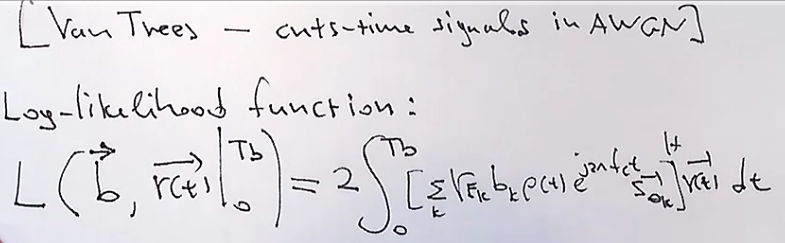 [Van Trees – cnts-time signals in AWGN]
Log-likelihood function:
L(b⃗, r⃗(t)|₀^Tb) = 2∫₀^Tb [Σₖ √Eₖ bₖ p(t) e^{j2πf_c t} S⃗_{θₖ}]^H r⃗(t) dt